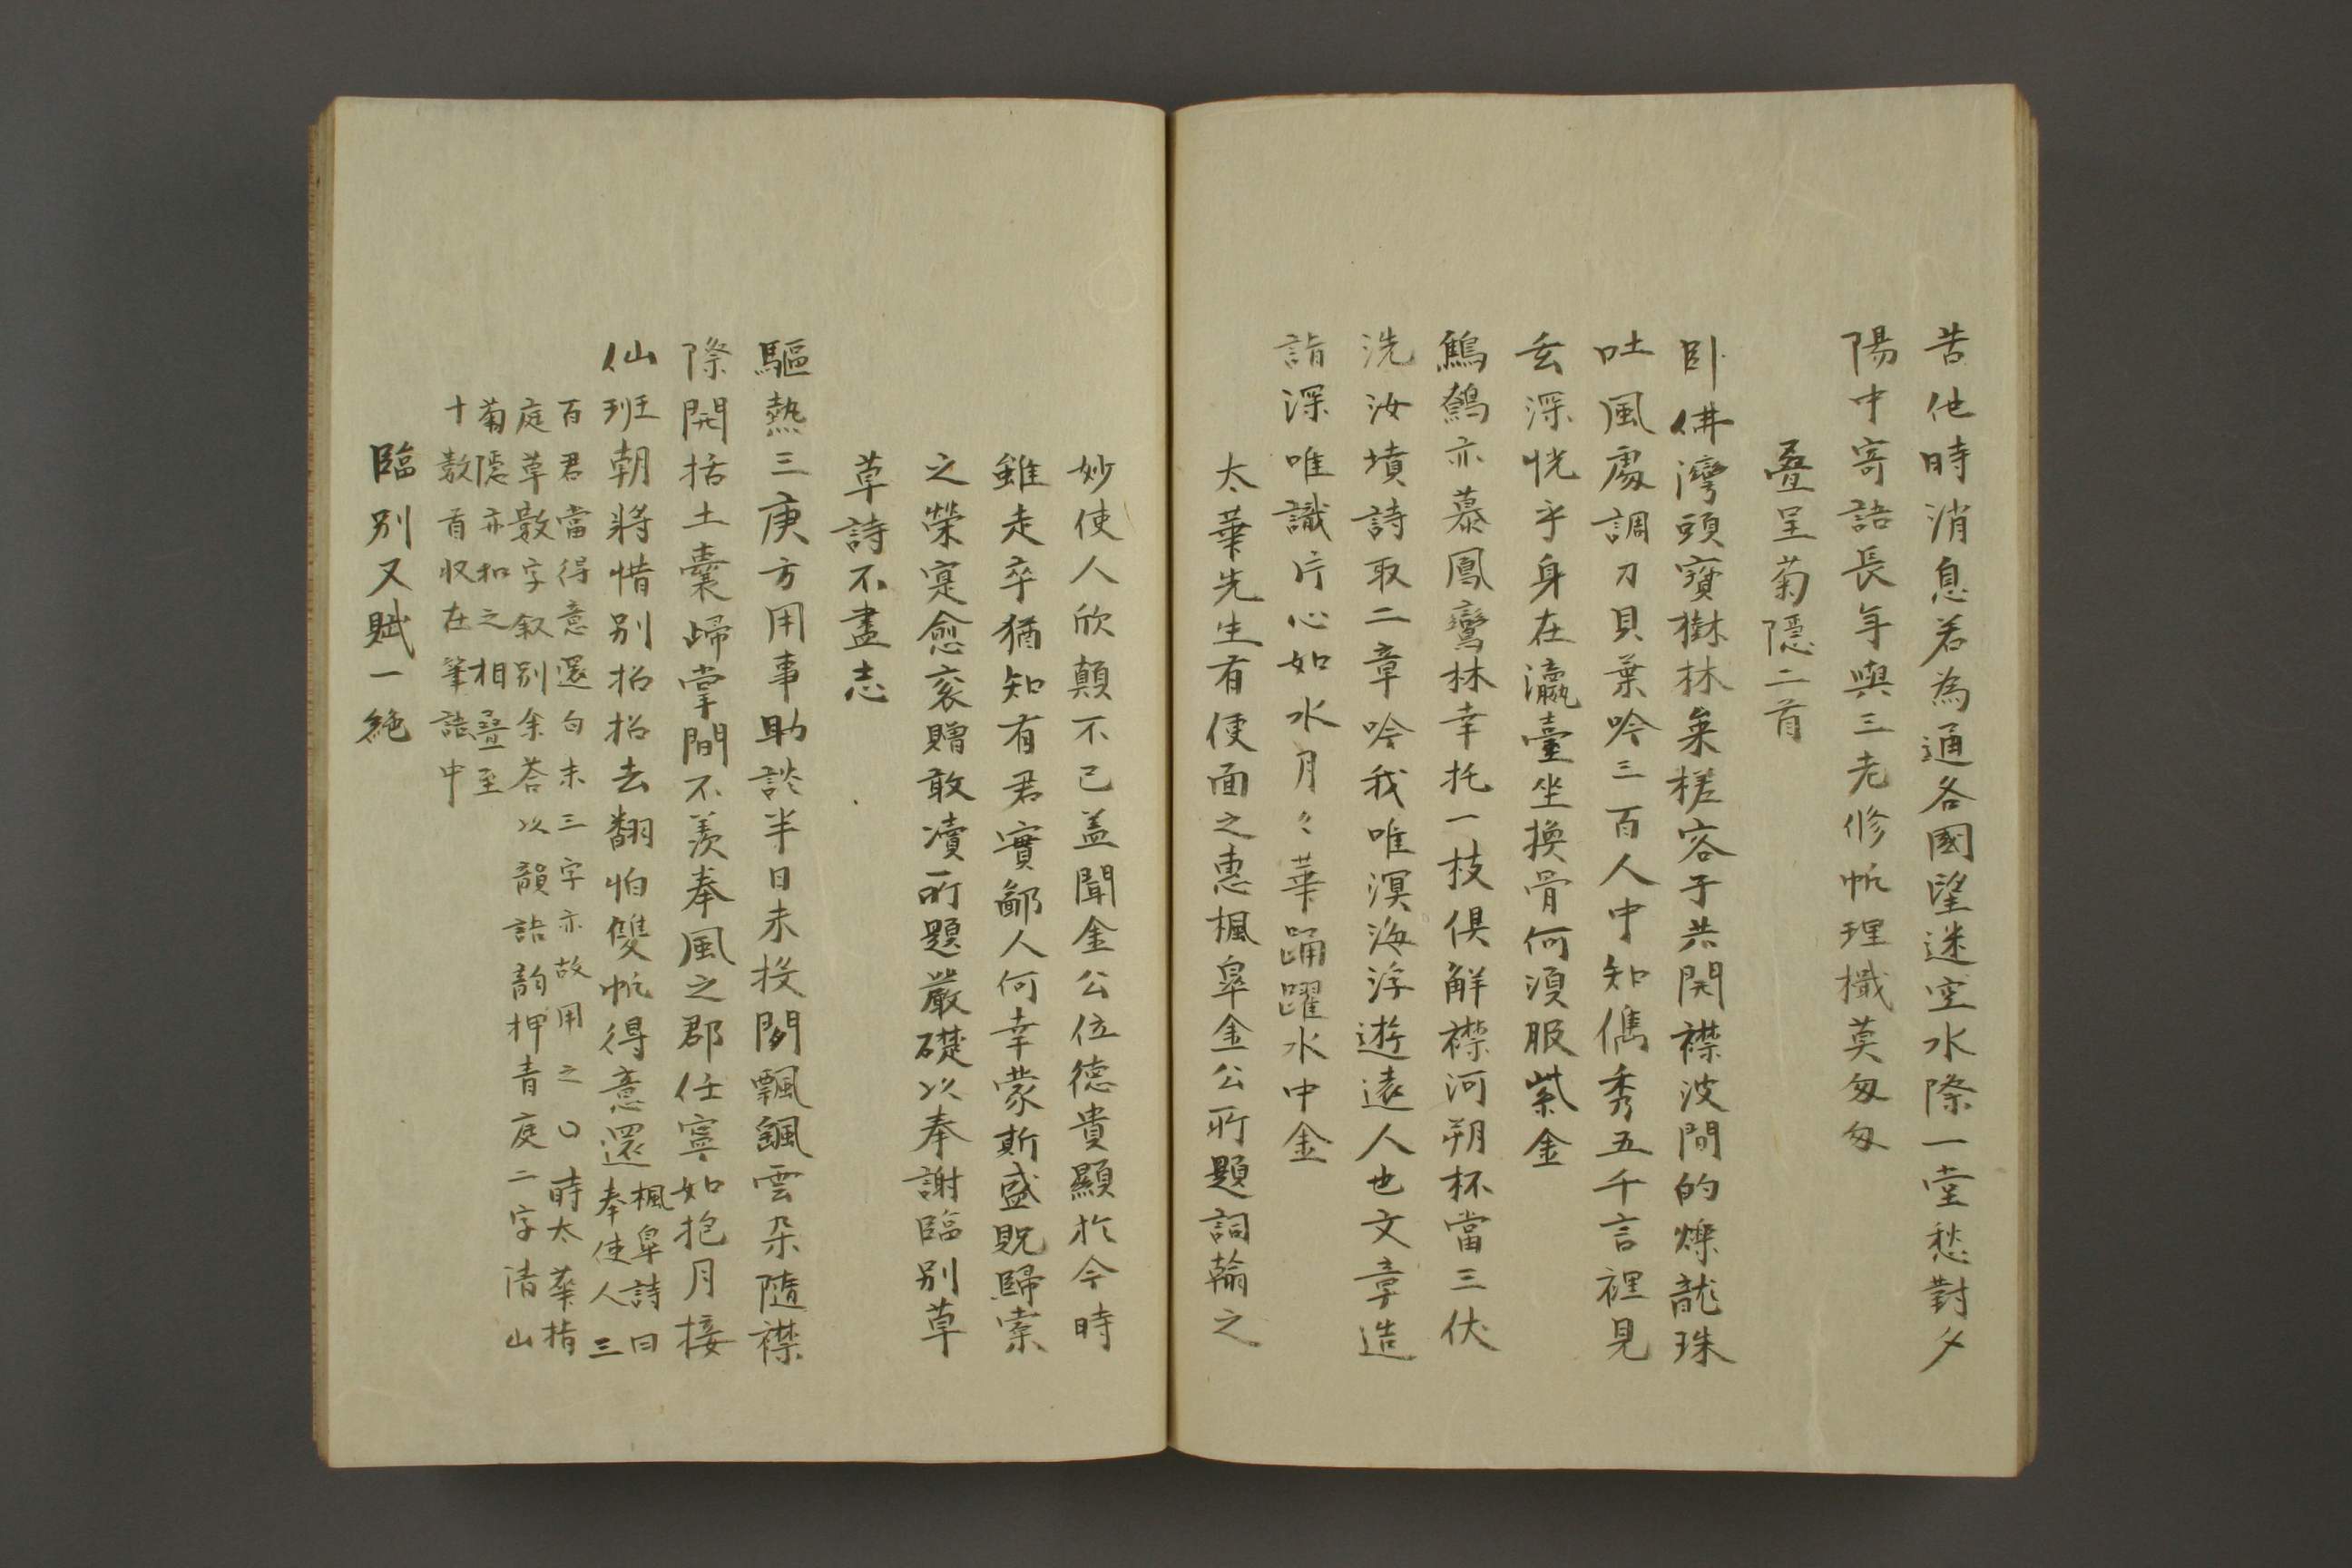 苦他時消息若為通各國望迷空水際一堂愁對夕
陽中寄語長年與三老修帆理檝莫匆匆
疊呈菊隱二首
臥佛灣頭寶樹林乗槎客子共開襟波間的爍龍珠
吐風處調刀貝葉吟三百人中知儁秀五千言裡見
玄深恍乎身在瀛臺坐換骨何須服紫金
鷦鷯亦慕鳳鸞林幸托一枝倶解襟河朔杯當三伏
洗汝墳詩取二章吟我唯溟海浮遊遠人也文章造
詣深唯識片心如水月々華踊躍水中金
太華先生有便面之惠楓皐金公所題詞翰之
妙使人欣顛不已盖聞金公位德貴顯於今時
雖走卒猶知有君實鄙人何幸蒙斯盛貺歸橐
之榮寔愈衮贈敢凟所題嚴礎以奉謝臨別草
草詩不盡志
驅熱三庚方用事助談半日未投閑飄飄雲朵隨襟
際開括土囊歸掌間不羨奉風之郡任寧如抱月接
仙班朝將惜別招招去翻怕雙帆得意還楓皐詩曰
奉使人三
百君當得意還句末三字亦故用之〇時太華指
庭草數字叙別余荅以韻語韵押青庭二字清山
菊隱亦和之相疊至
十數首収在筆語中
臨別又賦一絶